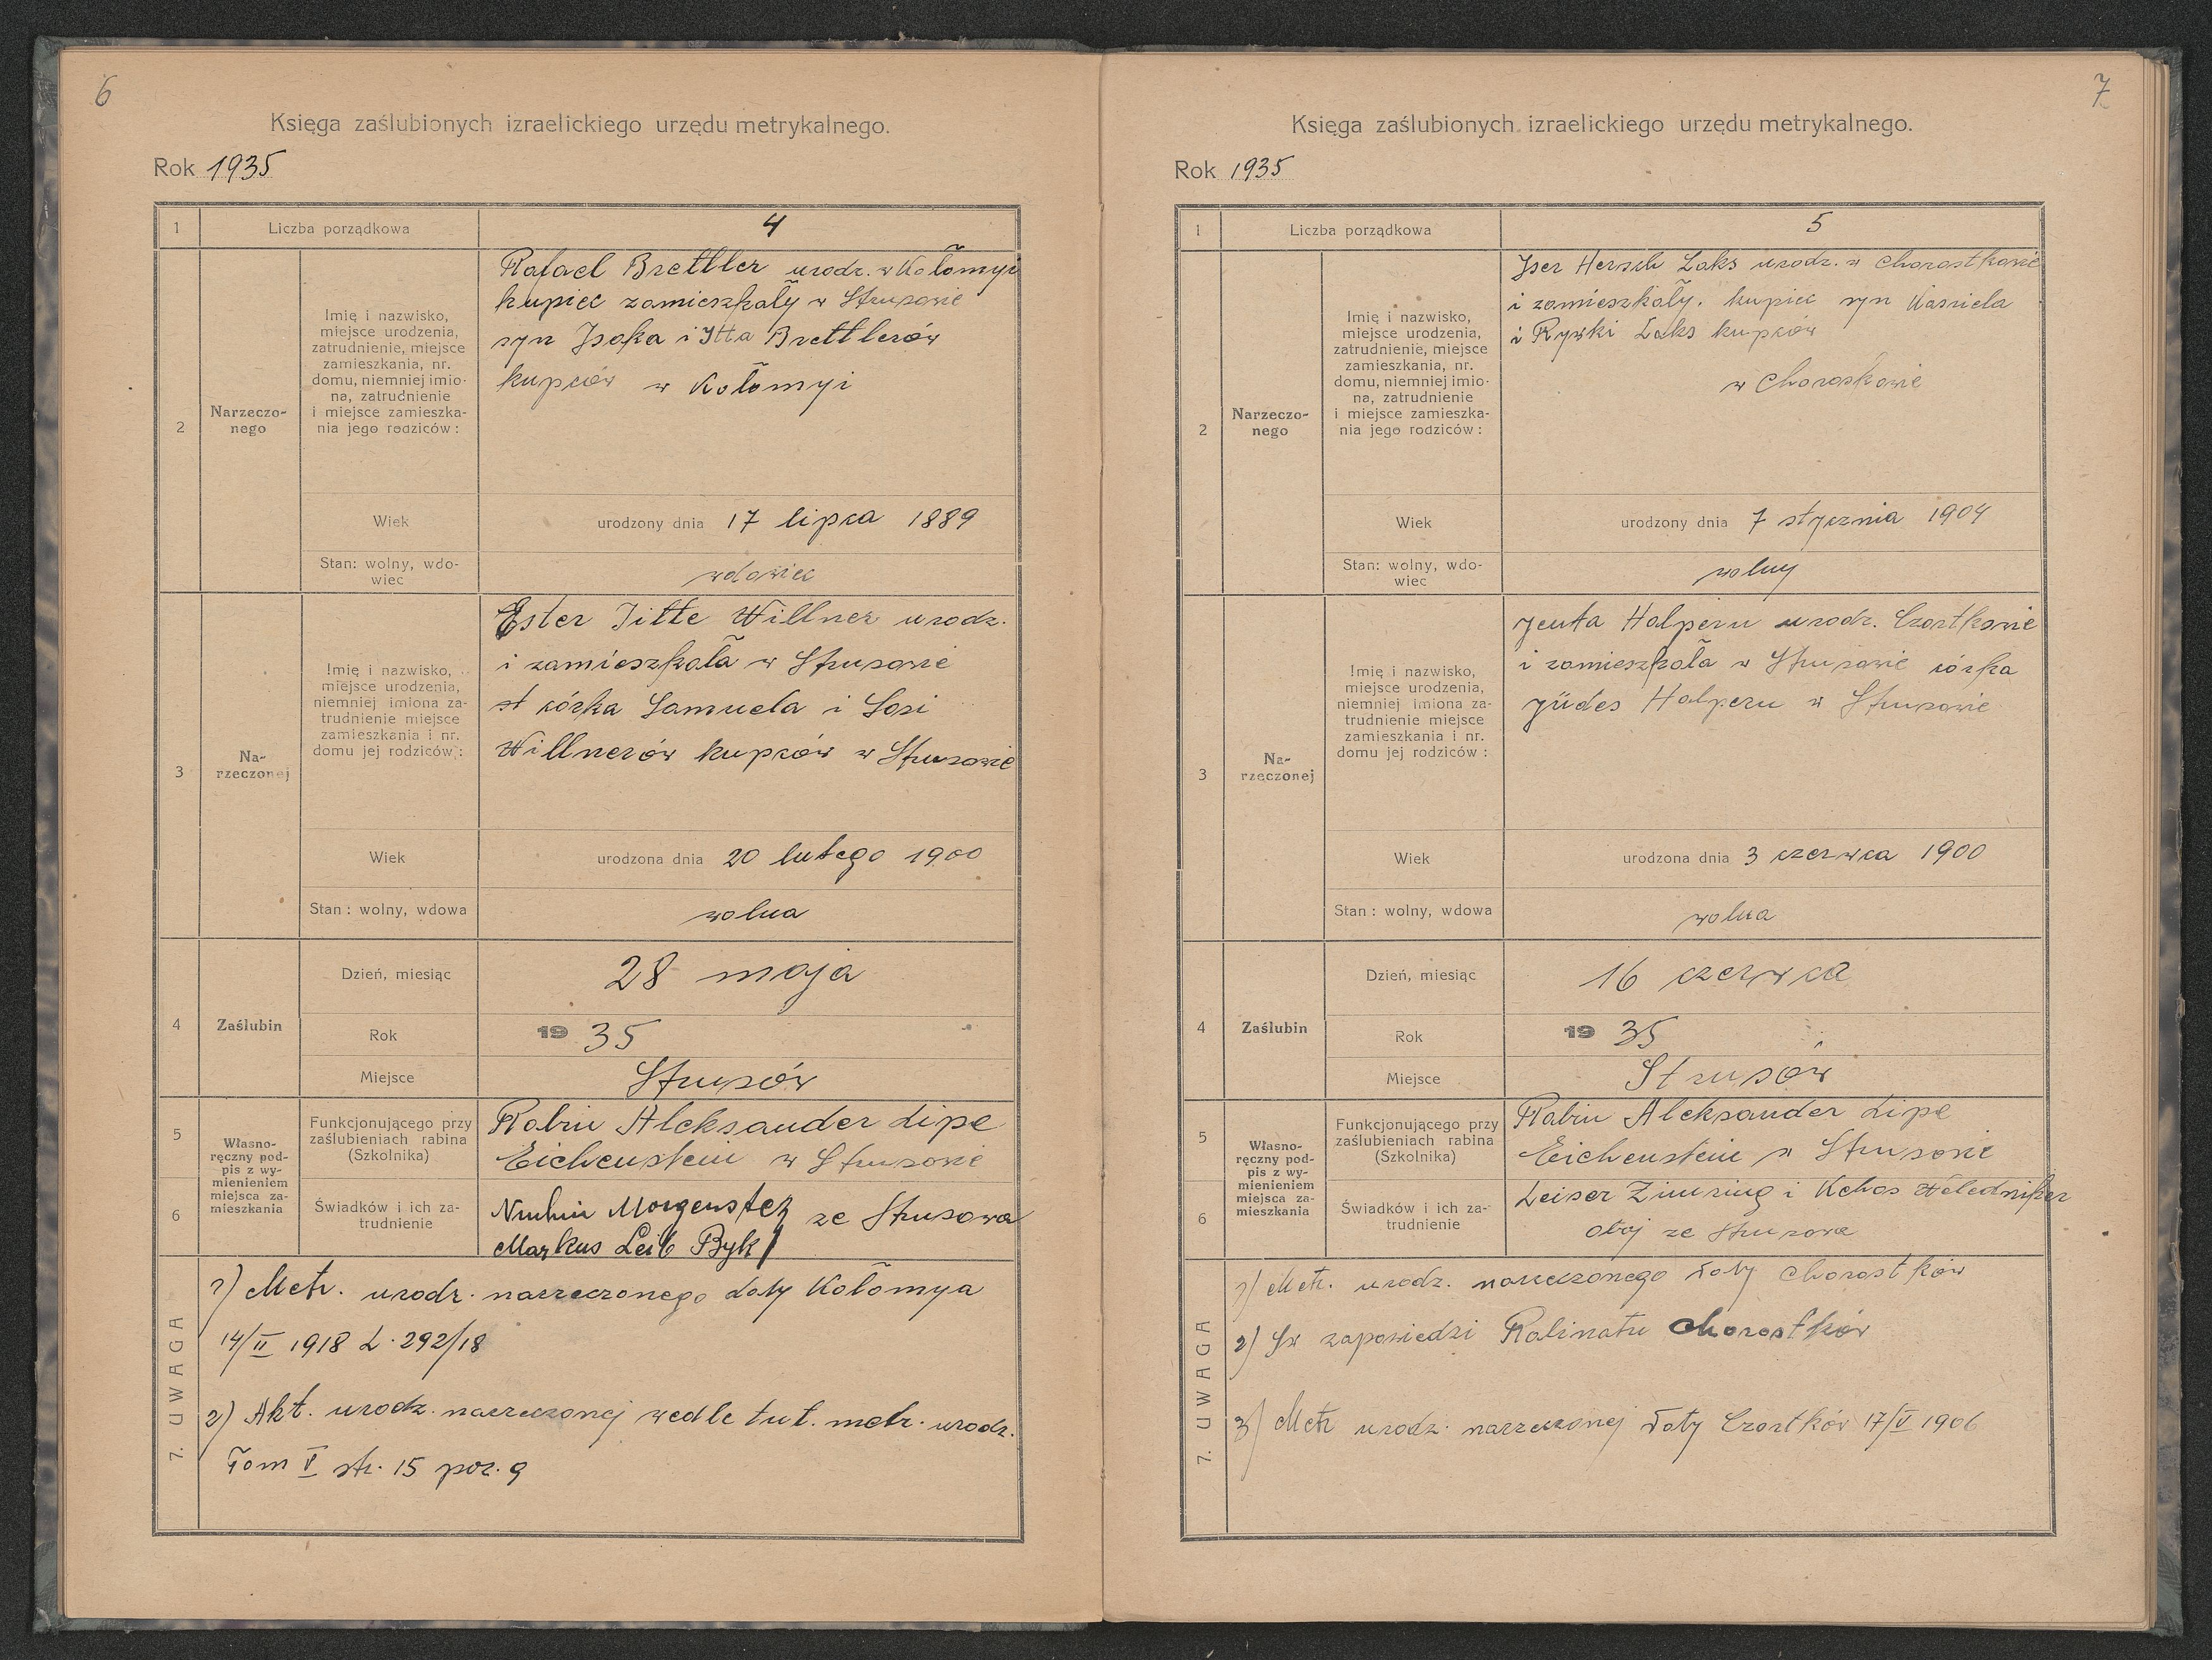 6
Księga zaślubionych izraelickiego urzędu metrykalnego.
Rok 1935
1 Liczba porządkowa 4
2 Narzeczo-
nego
Imię i nazwisko,
miejsce urodzenia,
zatrudnienie, miejsce
zamieszkania, nr.
domu, niemniej imio-
na, zatrudnienie
i miejsce zamieszka-
nia jego rodziców:
Rafael Brettler urodz. w Kołomyi
kupiec zamieszkały w Strusowie
syn Isaka i Itta Brettlerów
kupców w Kołomyi
Wiek urodzony dnia 17 lipca 1889
Stan: wolny, wdo-
wiec
wdowiec
3 Na-
rzeczonej
Imię i nazwisko,
miejsce urodzenia,
niemniej imiona za-
trudnienie miejsce
zamieszkania i nr.
domu jej rodziców:
Ester Jitte Willner urodz.
i zamieszkała w Strusowie
st córka Samuela i Sosi
Willnerów kupców w Strusowie
Wiek urodzona dnia 20 lutego 1900
Stan: wolny, wdowa wolna
4 Zaślubin
Dzień, miesiąc 28 maja
Rok 19 35
Miejsce Strusów
5
6
Własno-
ręczny pod-
pis z wy-
mienieniem
miejsca za-
mieszkania
Funkcjonującego przy
zaślubieniach rabina
(Szkolnika)
Rabin Aleksander Lipe
Eichenstein w Strusowie
Świadków i ich za-
trudnienie
Nuchin Morgenster ze Strusowa
Markus Leib Byk
7. UWAGA
1) Metr. urodz. narzeczonego daty Kołomya
14/II 1918 L. 292/18
2) Akt. urodz. narzeczonej wedle tut. metr. urodz.
Tom V str. 15 poz. 9
7
Księga zaślubionych izraelickiego urzędu metrykalnego.
Rok 1935
1 Liczba porządkowa 5
2 Narzeczo-
nego
Imię i nazwisko,
miejsce urodzenia,
zatrudnienie, miejsce
zamieszkania, nr.
domu, niemniej imio-
na, zatrudnienie
i miejsce zamieszka-
nia jego rodziców:
Iser Hersch Laks urodz. w Chorostkowie
i zamieszkały. kupiec syn Kasriela
i Rywki Laks kupców
w Choroskowie
Wiek urodzony dnia 7 stycznia 1904
Stan: wolny, wdo-
wiec
wolny
3 Na-
rzeczonej
Imię i nazwisko,
miejsce urodzenia,
niemniej imiona za-
trudnienie miejsce
zamieszkania i nr.
domu jej rodziców:
Jenta Halpern urodz. Czortkowie
i zamieszkała w Strusowie córka
Jüdes Halpern w Strusowie
Wiek urodzona dnia 3 czerwca 1900
Stan: wolny, wdowa wolna
4 Zaślubin
Dzień, miesiąc 16 czerwca
Rok 19 35
Miejsce Strusów
5
6
Własno-
ręczny pod-
pis z wy-
mienieniem
miejsca za-
mieszkania
Funkcjonującego przy
zaślubieniach rabina
(Szkolnika)
Rabin Aleksander Lipe
Eichenstein w Strusowie
Świadków i ich za-
trudnienie
Leiser Zimring i Kehos
obaj ze Strusowa
7. UWAGA
1) Metr. urodz. narzeczonego daty Chorostków
2) Św zapowiedzi Rabinatu Chorostków
3) Metr urodz. narzeczonej daty Czortków 17/V 1906